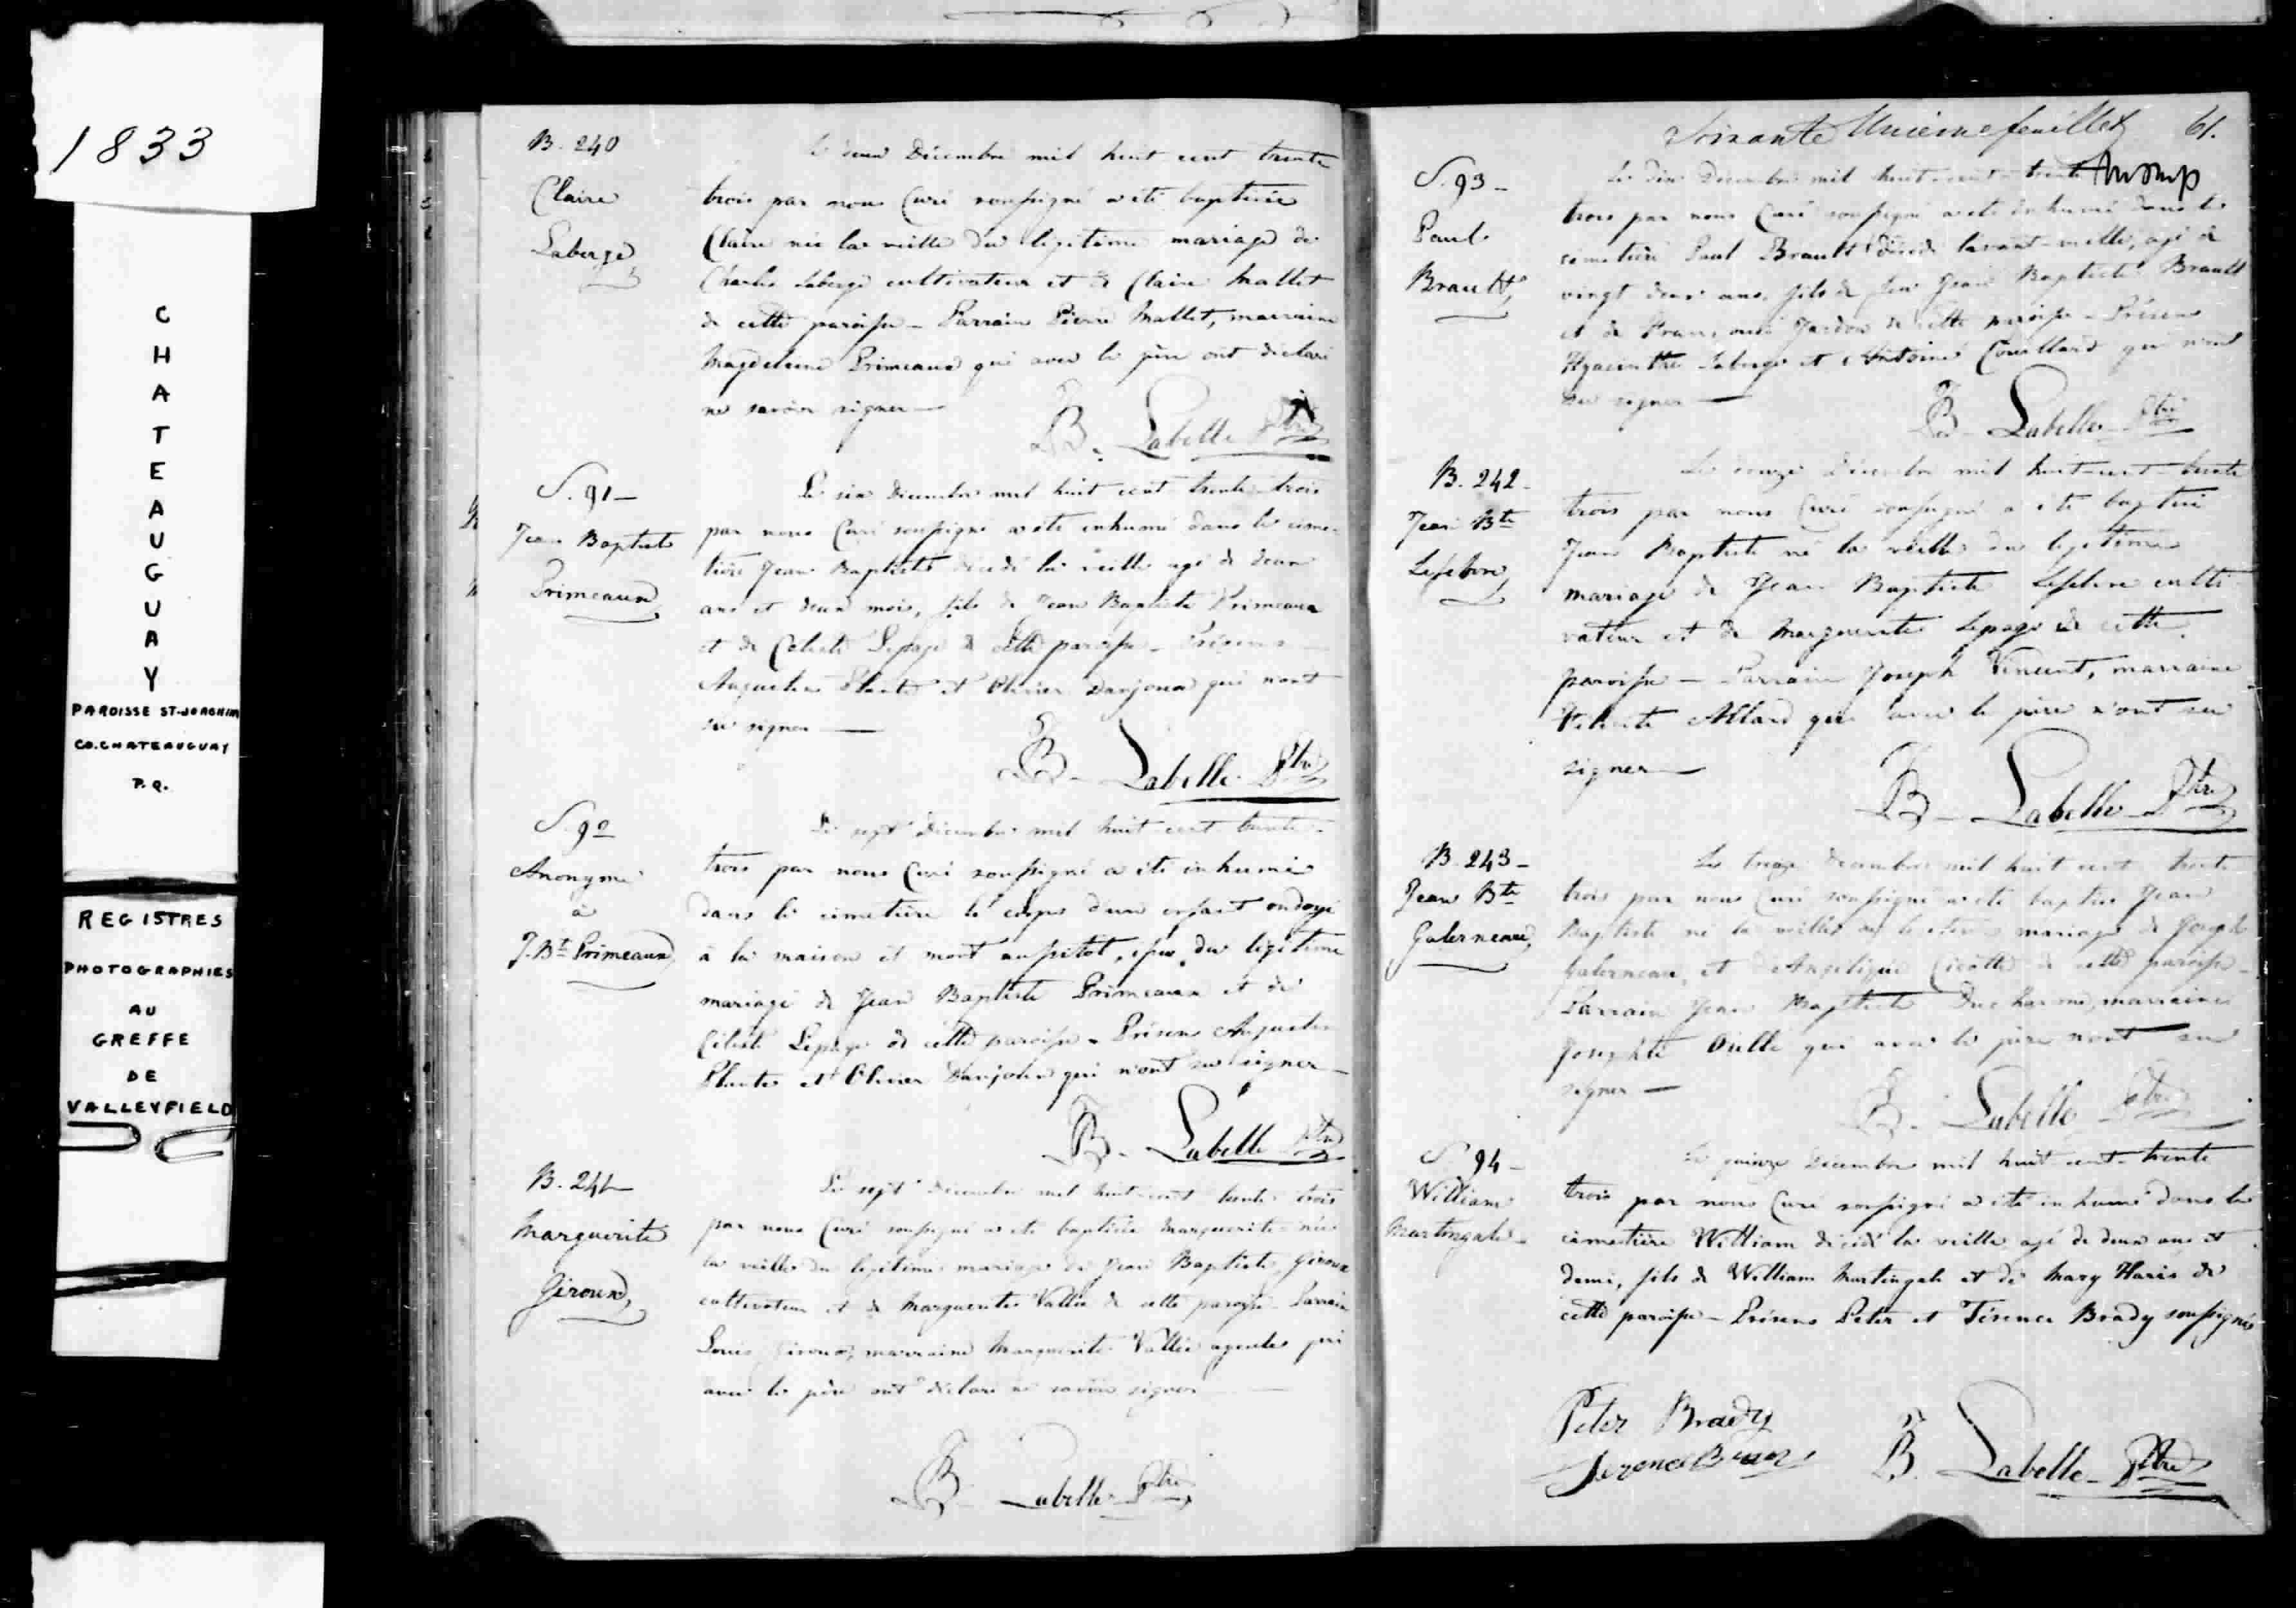 1833
CHATEAUGUAY
PAROISSE ST-JOACHIM
CO. CHATEAUGUAY
P.Q.
REGISTRES
PHOTOGRAPHIES
AU
GREFFE
DE
VALLEYFIELD
B. 240
Claire
Laberge
Le deux Décembre mil huit cent trente
trois par nous Curé soussigné a été baptisée
Claire née la veille du légitime mariage de
Charles Laberge cultivateur et de Claire Mallet
de cette paroisse - Parrain Pierre Mallet, marraine
Magdeleine Primeaux qui avec le père ont déclaré
ne savoir signer —
JB. Labelle Ptre
S. 91 —
Jean Baptiste
Primeaux
Le six Décembre mil huit cent trente trois
par nous Curé soussigné a été inhumé dans le cime-
tière Jean Baptiste décédé la veille agé de deux
ans et deux mois, fils de Jean Baptiste Primeaux
et de Celeste Lepage de cette paroisse - Présens
Augustin Plante et Olivier Danjou qui n'ont
su signer —
JB - Labelle Ptre
S. 92
Anonyme
à
J. Bte Primeaux
Le sept Décembre mil huit cent trente-
trois par nous Curé soussigné a été inhumé
dans le cimetière le corps d'un enfant ondoyé
à la maison et mort aussitôt, issu du légitime
mariage de Jean Baptiste Primeaux et de
Céleste Lepage de cette paroisse - Présens Augustin
Plante et Olivier Danjou qui n'ont su signer —
JB - Labelle Ptre
B. 241
Marguerite
Giroux
Le sept décembre mil huit cent trente trois
par nous Curé soussigné a été baptisée Marguerite née
la veille du légitime mariage de Jean Baptiste Giroux
cultivateur et de Marguerite Vallée de cette paroisse - Parrain
Louis Giroux, marraine Marguerite Vallée qui
avec le père ont déclaré ne savoir signer —
JB Labelle Ptre
Soixante Unieme feuillet 61.
S. 93 -
Paul
Brault
Le dix Décembre mil huit cent trente
trois par nous Curé soussigné a été inhumé dans le
cimetière Paul Brault décédé l'avant-veille, agé de
vingt deux ans, fils de feu Jean Baptiste Brault
et de de cette paroisse - Présens
Hyacinthe Laberge et Antoine Couillard qui n'ont
su signer —
JB - Labelle - Ptre
B. 242 -
Jean Bte
Lefebvre
Le douze Décembre mil huit-cent trente
trois par nous Curé soussigné a été baptisé
Jean Baptiste né la veille du légitime
mariage de Jean Baptiste Lefebvre culti
vateur et de Marguerite Lepage de cette
paroisse — Parrain Joseph Vincent, marraine
Allard qui avec le père n'ont su
signer —
JB - Labelle - Ptre
B. 243 -
Jean Bte
Galerneau
Le treize Decembre mil huit cent trente
trois par nous Curé soussigné a été baptisé Jean
Baptiste né la veille du légitime mariage de Joseph
Galerneau, et d'Angélique de cette paroisse -
Parrain Jean Baptiste Ducharme, marraine
Josephte qui avec le père n'ont su
signer —
JB - Labelle Ptre
S. 94 -
William
Martingale
Le quinze Décembre mil huit cent-trente
trois par nous Curé soussigné a été inhumé dans le
cimetière William décédé la veille agé de deux ans et
demi, fils de William Martingale et de Mary Haris de
cette paroisse - Présens Peter et Térence Brady soussignés
Peter Brady
JB. Labelle - Ptre